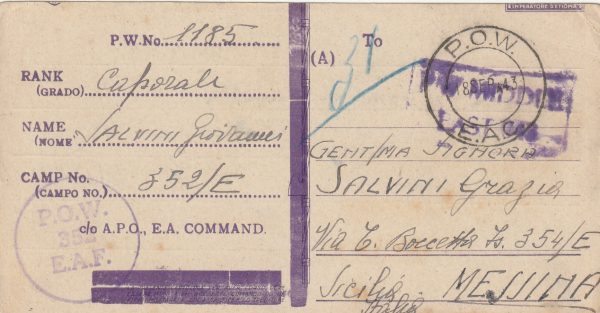 P.W.No. 1185
RANK
(GRADO) Caporale
NAME
(NOME) SALVINI Giovanni
CAMP No.
(CAMPO NO.) 352/E
c/o A.P.O., E.A. COMMAND.
P.O.W.
352
E.A.F.
To
(A)
P.O.W.
8 SEP 43
E.A.C.
GENT/MA SIGNORA
SALVINI Grazia
Via T. Boccetta Is. 354/E
Sicilia - MESSINA
Italia